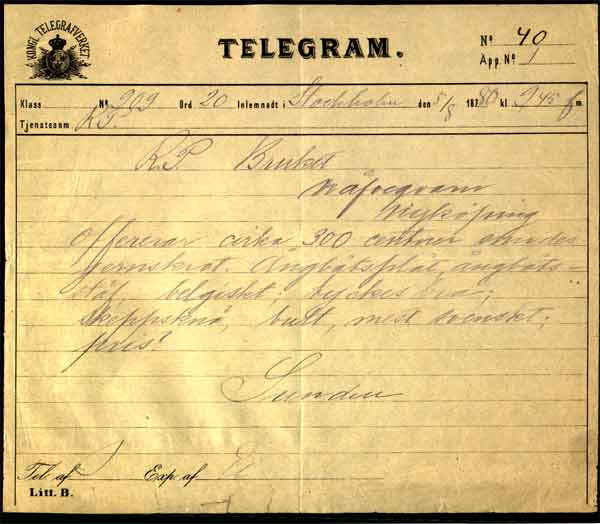 KONGL. TELEGRAFVERKET
TELEGRAM.
No 40
App. No 1
Klass No 909 Ord 20 Inlemnadt i Stockholm den 5/8 1880 kl 9 45 f m.
Tjensteanm R.P.
R.P. Bruket
Nyköping
Offererar cirka 300 centner
jernskrot. Ångbåtsplåt, ångbåts-
belgiskt, tyckes bra;
Skeppsknä, bult, mest svenskt;
pris?
Sunden
Tel. af
Exp. af
Litt. B.